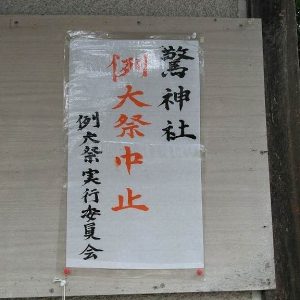 驚神社
例大祭中止
例大祭実行委員会